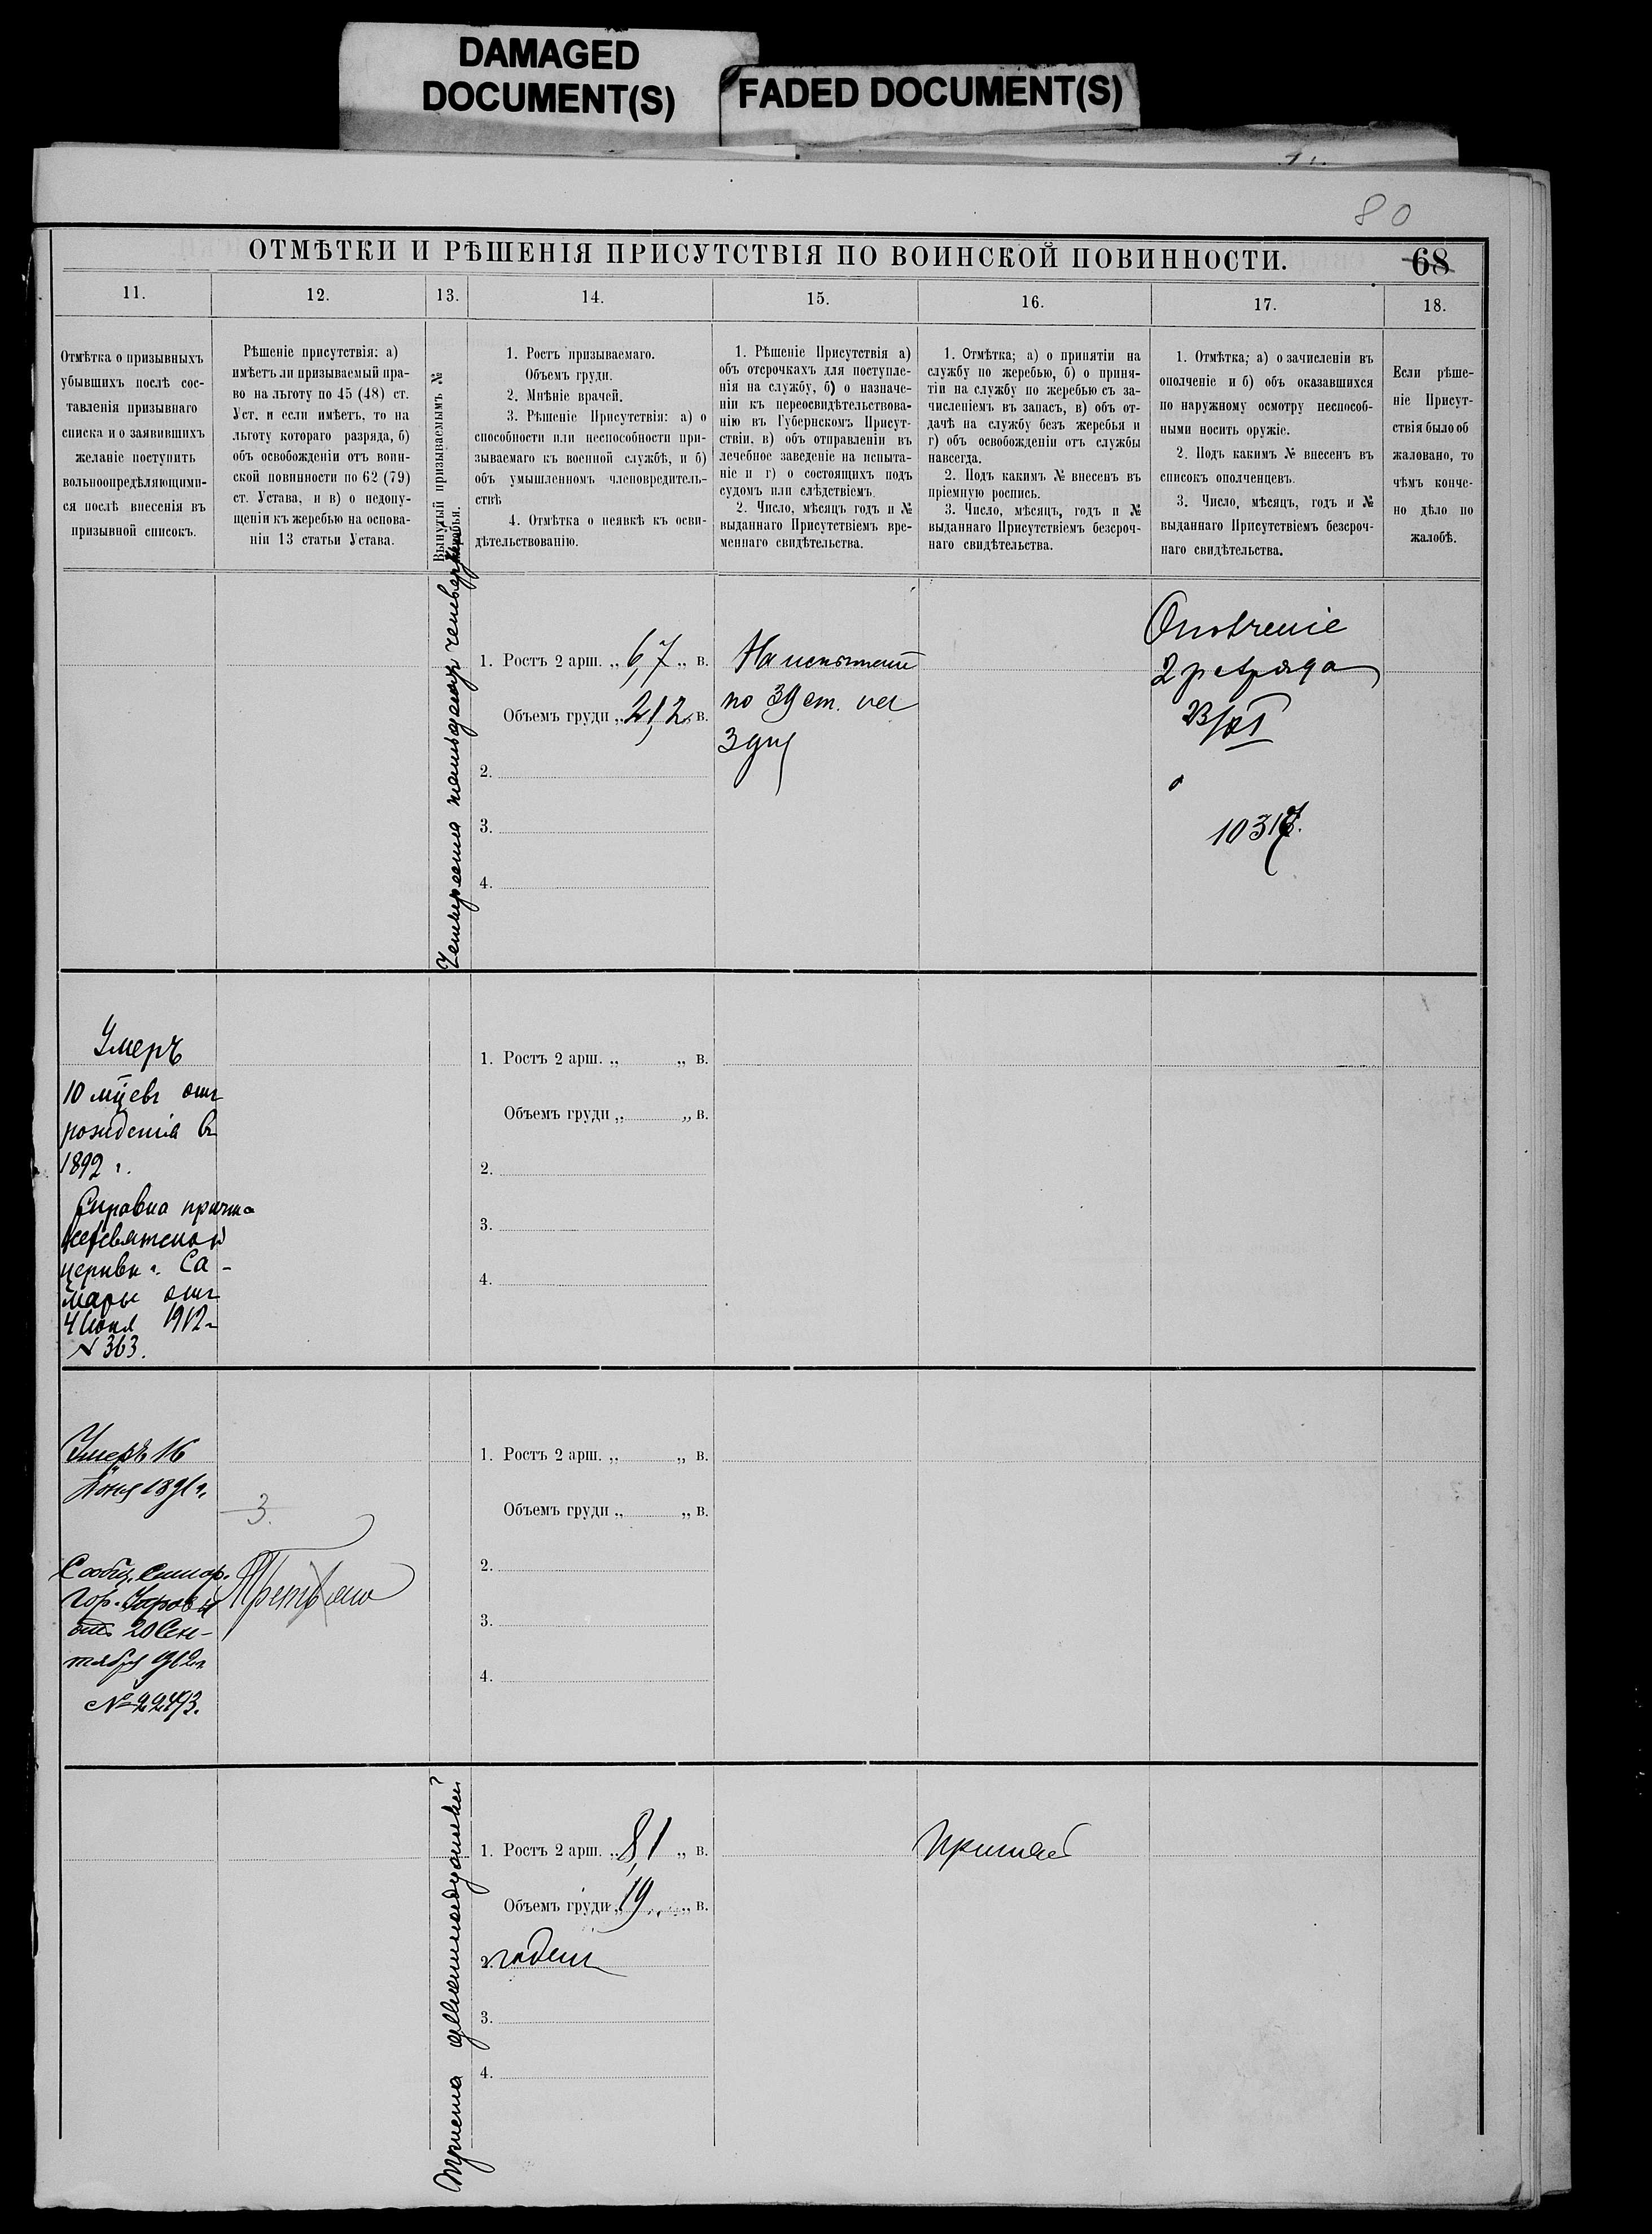 DAMAGED
DOCUMENT(S)
FADED DOCUMENT(S)
80
ОТМѢТКИ И РѢШЕНІЯ ПРИСУТСТВІЯ ПО ВОИНСКОЙ ПОВИННОСТИ.
68
11.
12.
13.
14.
15.
16.
17.
18.
Отмѣтка о призывныхъ
убывшихъ послѣ сос-
тавленія призывнаго
списка и о заявившихъ
желаніе поступить
вольноопредѣляющими-
ся послѣ внесенія въ
призывной списокъ.
Рѣшеніе присутствія: а)
имѣетъ ли призываемый пра-
во на льготу по 45 (48) ст.
Уст. и если имѣетъ, то на
льготу котораго разряда, б)
объ освобожденіи отъ воин-
ской повинности по 62 (79)
ст. Устава, и в) о недопу-
щеніи къ жеребью на основа-
ніи 13 статьи Устава.
Вынутый призываемымъ №
жеребья.
1. Ростъ призываемаго.
Объемъ груди.
2. Мнѣніе врачей.
3. Рѣшеніе Присутствія: а) о
способности или неспособности при-
зываемаго къ военной службѣ, и б)
объ умышленномъ членовредитель-
ствѣ
4. Отмѣтка о неявкѣ къ осви-
дѣтельствованію.
1. Рѣшеніе Присутствія а)
объ отсрочкахъ для поступле-
нія на службу, б) о назначе-
ніи къ переосвидѣтельствова-
нію въ Губернскомъ Присут-
ствіи, в) объ отправленіи въ
лечебное заведеніе на испыта-
ніе и г) о состоящихъ подъ
судомъ или слѣдствіемъ.
2. Число, мѣсяцъ годъ и №
выданнаго Присутствіемъ вре-
меннаго свидѣтельства.
1. Отмѣтка; а) о принятіи на
службу по жеребью, б) о приня-
тіи на службу по жеребью съ за-
численіемъ въ запасъ, в) объ от-
дачѣ на службу безъ жеребья и
г) объ освобожденіи отъ службы
навсегда.
2. Подъ какимъ № внесенъ въ
пріемную роспись.
3. Число, мѣсяцъ, годъ и №
выданнаго Присутствіемъ безсроч-
наго свидѣтельства.
1. Отмѣтка; а) о зачисленіи въ
ополченіе и б) объ оказавшихся
по наружному осмотру неспособ-
ными носить оружіе.
2. Подъ какимъ № внесенъ въ
списокъ ополченцевъ.
3. Число, мѣсяцъ, годъ и №
выданнаго Присутствіемъ безсроч-
наго свидѣтельства.
Если рѣше-
ніе Присут-
ствія было об
жаловано, то
чѣмъ конче-
но дѣло по
жалобѣ.
Четыреста пятьдесят четверт
1. Ростъ 2 арш. „ 6,7 „ в.
Объемъ груди „ 21,2 „ в.
2.
3.
4.
На испытан
по 39 ст.
Ополченіе
2 разряда
23/XI
10317.
Умеръ
10 мцевъ отъ
рожденія въ
1892 г.
Справка причта
Всесвятской
церкви г. Са-
мары отъ
4 Іюня 1912 г
N 363.
1. Ростъ 2 арш. „ „ в.
Объемъ груди „ „ в.
2.
3.
4.
Умеръ 16
Іюня 1891 г.
Сообщ. Самар.
Гор. Управы
отъ 20 Сен-
тября 912 г
№ 22493.
3.
Третьяго
1. Ростъ 2 арш. „ „ в.
Объемъ груди „ „ в.
2.
3.
4.
Триста двенадцатый
1. Ростъ 2 арш. „ 8,1 „ в.
Объемъ груди „ 19 „ в.
2. годенъ
3.
4.
Принятъ